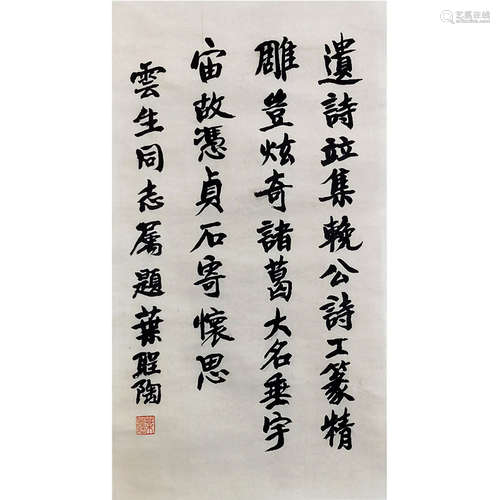 遺詩竝集輓公詩工篆精
雕豈炫奇諸葛大名垂宇
宙故憑貞石寄懷思
雲生同志屬題葉聖陶